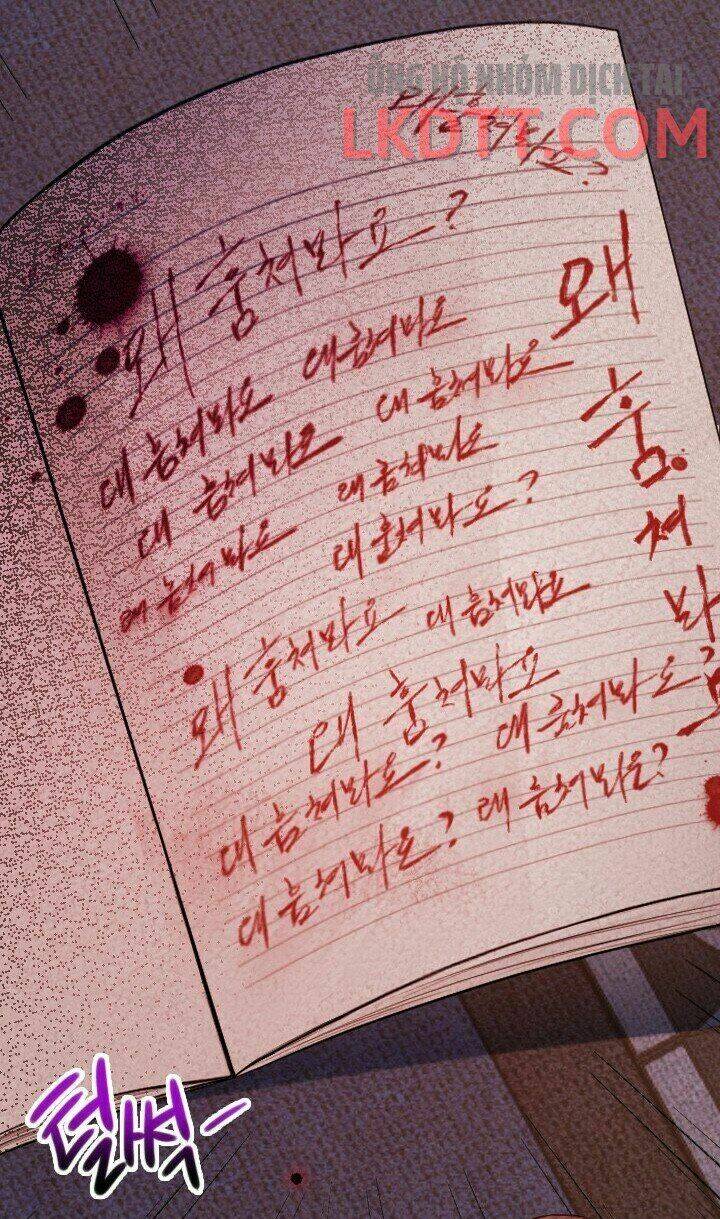 ỦNG HỘ NHÓM DỊCH TẠI
LKDTT.COM
왜 훔쳐봐요?
왜 훔쳐봐요?
왜 훔쳐봐요 왜 훔쳐봐요
왜 훔쳐봐요 왜 훔쳐봐요
왜 훔쳐봐요 왜 훔쳐봐요
왜 훔쳐봐요?
왜 훔쳐봐요 왜 훔쳐봐요
왜 훔쳐봐요
왜 훔쳐봐요? 왜 훔쳐봐요?
왜 훔쳐봐요? 왜 훔쳐봐요?
왜
훔
쳐
봐
요
털썩